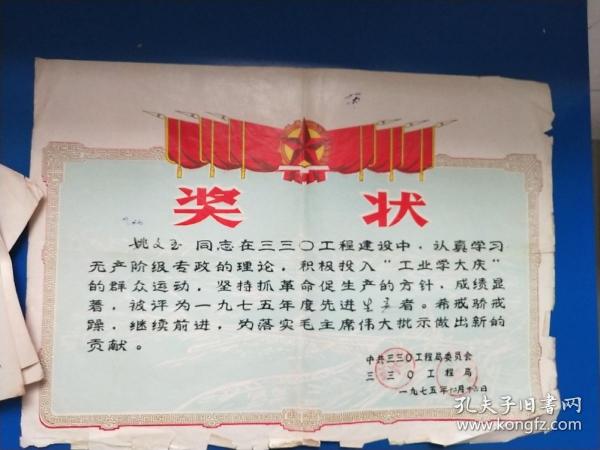 奖 状
姚文玉 同志在三三〇工程建设中，认真学习
无产阶级专政的理论，积极投入“工业学大庆”
的群众运动，坚持抓革命促生产的方针，成绩显
著，被评为一九七五年度先进生产者。希戒骄戒
躁，继续前进，为落实毛主席伟大批示做出新的
贡献。
中共三三〇工程局委员会
三三〇工程局
一九七五年 月 日
孔夫子旧书网
www.kongfz.com